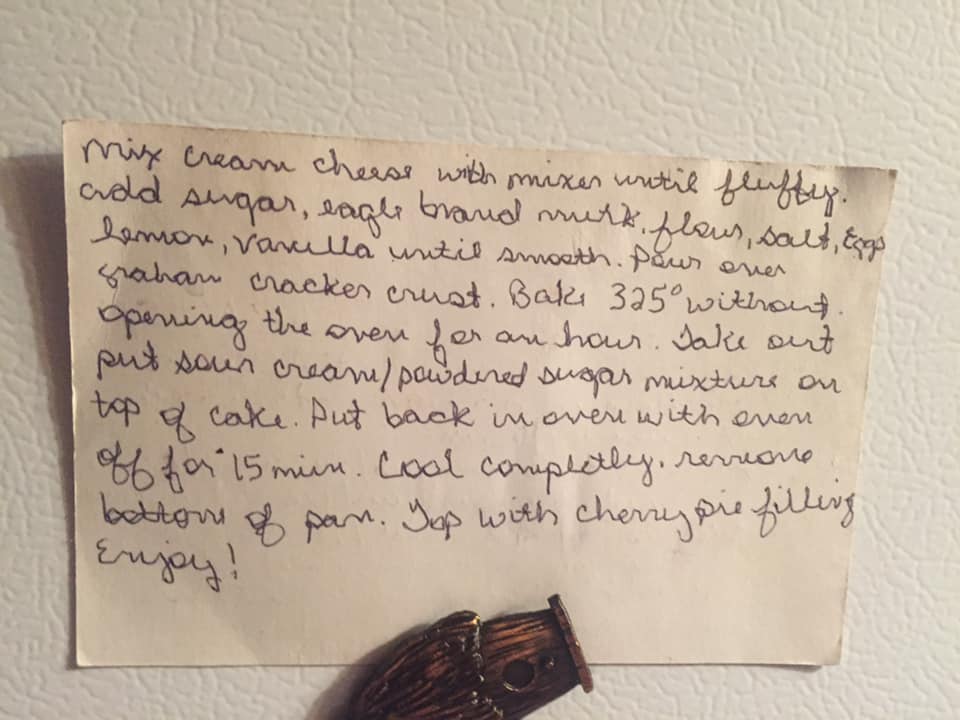 Mix cream cheese with mixer until fluffy.
add sugar, eagle brand milk, flour, salt, Eggs
lemon, vanilla until smooth. Pour over
graham cracker crust. Bake 325° without
opening the oven for an hour. Take out
put sour cream/powdered sugar mixture on
top of cake. Put back in oven with oven
off for 15 min. Cool completly. remove
bottom of pan. Top with cherry pie filling
Enjoy!